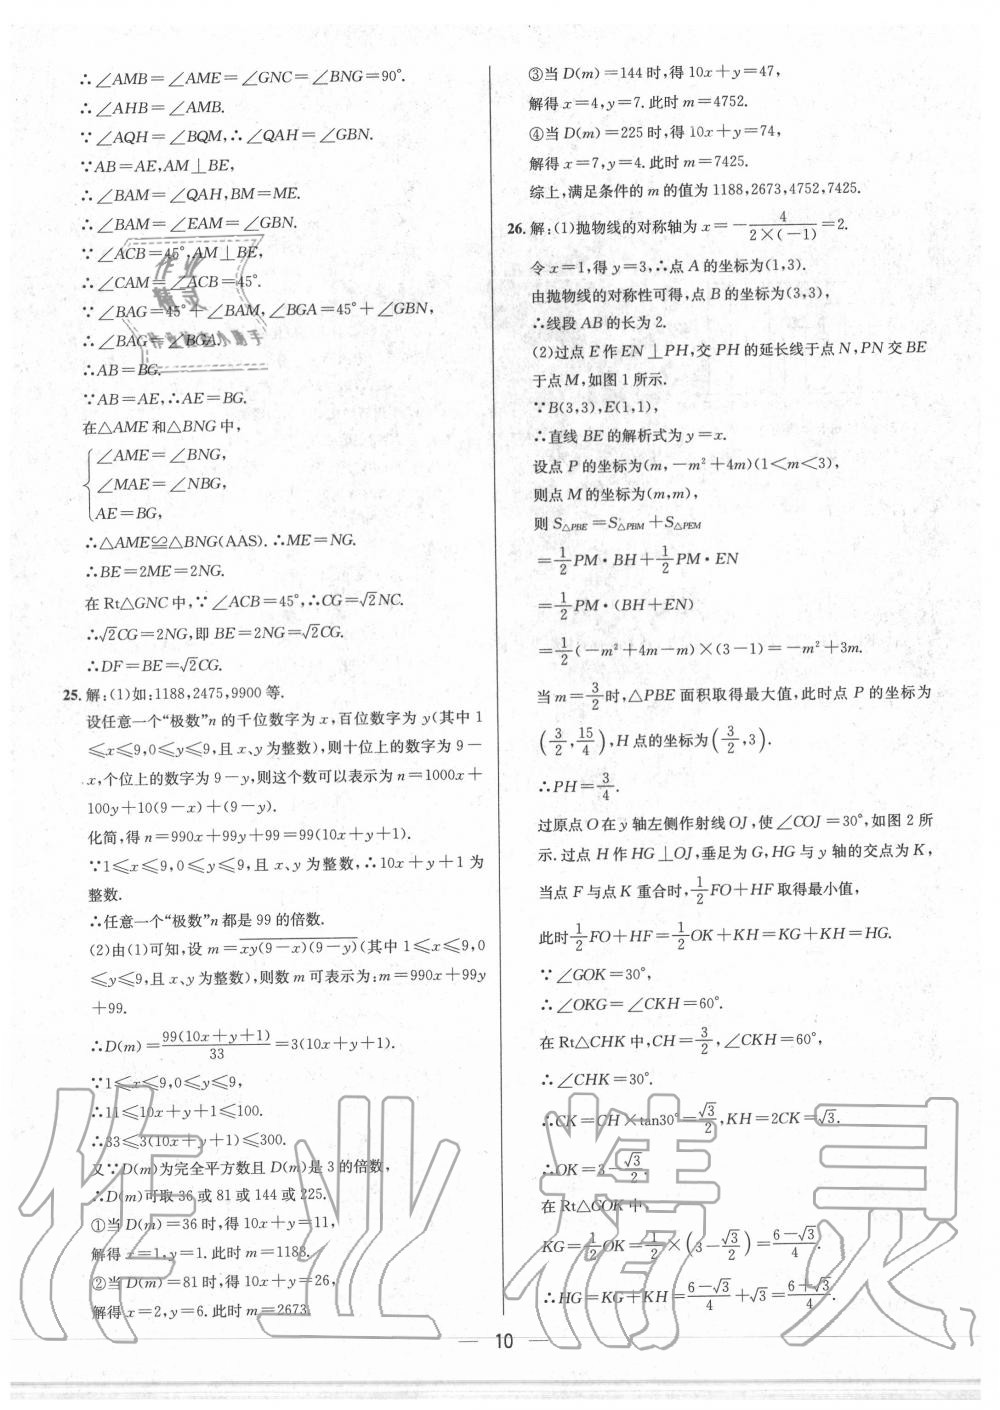 ∴∠AMB=∠AME=∠GNC=∠BNG=90°.
∴∠AHB=∠AMB.
∵∠AQH=∠BQM,∴∠QAH=∠GBN.
∵AB=AE,AM⊥BE,
∴∠BAM=∠QAH,BM=ME.
∴∠BAM=∠EAM=∠GBN.
∵∠ACB=45°,AM⊥BE,
∴∠CAM=∠ACB=45°.
∵∠BAG=45°+∠BAM,∠BGA=45°+∠GBN,
∴∠BAG=∠BGA.
∴AB=BG.
∵AB=AE,∴AE=BG.
在△AME和△BNG中,
∠AME=∠BNG,
∠MAE=∠NBG,
AE=BG,
∴△AME≌△BNG(AAS).∴ME=NG.
∴BE=2ME=2NG.
在Rt△GNC中,∵∠ACB=45°,∴CG=√2NC.
∴√2CG=2NG,即BE=2NG=√2CG.
∴DF=BE=√2CG.
25.解:(1)如:1188,2475,9900等.
设任意一个“极数”n的千位数字为x,百位数字为y(其中1
≤x≤9,0≤y≤9,且x、y为整数),则十位上的数字为9-
x,个位上的数字为9-y,则这个数可以表示为n=1000x+
100y+10(9-x)+(9-y).
化简,得n=990x+99y+99=99(10x+y+1).
∵1≤x≤9,0≤y≤9,且x、y为整数,∴10x+y+1为
整数.
∴任意一个“极数”n都是99的倍数.
(2)由(1)可知,设m=xy(9-x)(9-y)(其中1≤x≤9,0
≤y≤9,且x、y为整数),则数m可表示为:m=990x+99y
+99.
∴D(m)=99(10x+y+1)/33=3(10x+y+1).
∵1≤x≤9,0≤y≤9,
∴11≤10x+y+1≤100.
∴33≤3(10x+y+1)≤300.
又∵D(m)为完全平方数且D(m)是3的倍数,
∴D(m)可取36或81或144或225.
①当D(m)=36时,得10x+y=11,
解得x=1,y=1.此时m=1188.
②当D(m)=81时,得10x+y=26,
解得x=2,y=6.此时m=2673.
③当D(m)=144时,得10x+y=47,
解得x=4,y=7.此时m=4752.
④当D(m)=225时,得10x+y=74,
解得x=7,y=4.此时m=7425.
综上,满足条件的m的值为1188,2673,4752,7425.
26.解:(1)抛物线的对称轴为x=-4/(2×(-1))=2.
令x=1,得y=3,∴点A的坐标为(1,3).
由抛物线的对称性可得,点B的坐标为(3,3),
∴线段AB的长为2.
(2)过点E作EN⊥PH,交PH的延长线于点N,PN交BE
于点M,如图1所示.
∵B(3,3),E(1,1),
∴直线BE的解析式为y=x.
设点P的坐标为(m,-m²+4m)(1<m<3),
则点M的坐标为(m,m),
则S△PBE=S△PBM+S△PEM
=1/2PM·BH+1/2PM·EN
=1/2PM·(BH+EN)
=1/2(-m²+4m-m)×(3-1)=-m²+3m.
当m=3/2时,△PBE面积取得最大值,此时点P的坐标为
(3/2,15/4),H点的坐标为(3/2,3).
∴PH=3/4.
过原点O在y轴左侧作射线OJ,使∠COJ=30°,如图2所
示.过点H作HG⊥OJ,垂足为G,HG与y轴的交点为K,
当点F与点K重合时,1/2FO+HF取得最小值,
此时1/2FO+HF=1/2OK+KH=KG+KH=HG.
∵∠GOK=30°,
∴∠OKG=∠CKH=60°.
在Rt△CHK中,CH=3/2,∠CKH=60°,
∴∠CHK=30°.
∴CK=CH×tan30°=√3/2,KH=2CK=√3.
∴OK=3-√3/2.
在Rt△GOK中,
KG=1/2OK=1/2×(3-√3/2)=(6-√3)/4.
∴HG=KG+KH=(6-√3)/4+√3=(6+3√3)/4.
10
作业精灵
作业
精灵
作业检查小助手